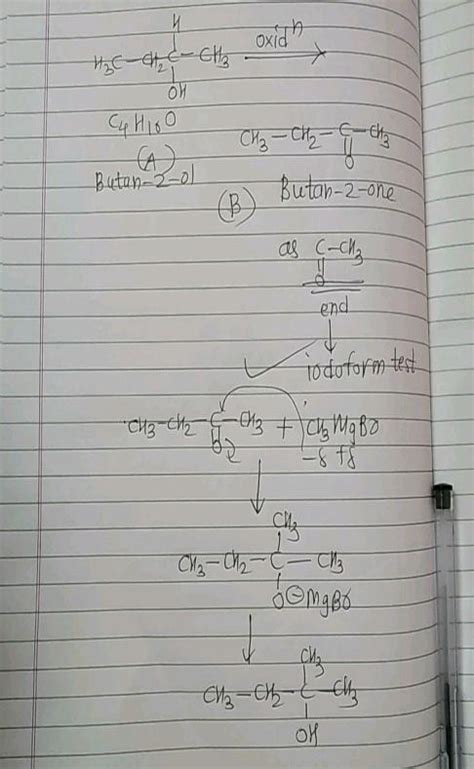 H
H₃C-CH₂-C-CH₃ oxidⁿ
OH
C₄H₁₀O
(A) CH₃-CH₂-C-CH₃
O
Butan-2-ol
(B) Butan-2-one
as C-CH₃
O
end
iodoform test
CH₃-CH₂-C-CH₃ + CH₃MgBr
O -δ +δ
CH₃
CH₃-CH₂-C-CH₃
O⊖MgBr
CH₃
CH₃-CH₂-C-CH₃
OH